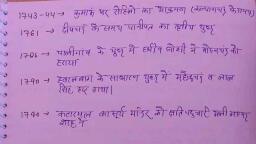 1743-44 → कुमाऊं पर रोहिलों का आक्रमण (कल्याणचंद के समय)
1761 → दीपचंद के समय पानीपत का तृतीय युद्ध
1786 → पालीगांव के युद्ध में हर्षदेव जोशी ने मोहनचंद को हराया
1790 → हवालबाग के साधारण युद्ध में महेन्द्रचंद व लाल सिंह हार गया।
1790 → कटारमल का सूर्य मंदिर को क्षति पहुंचाई